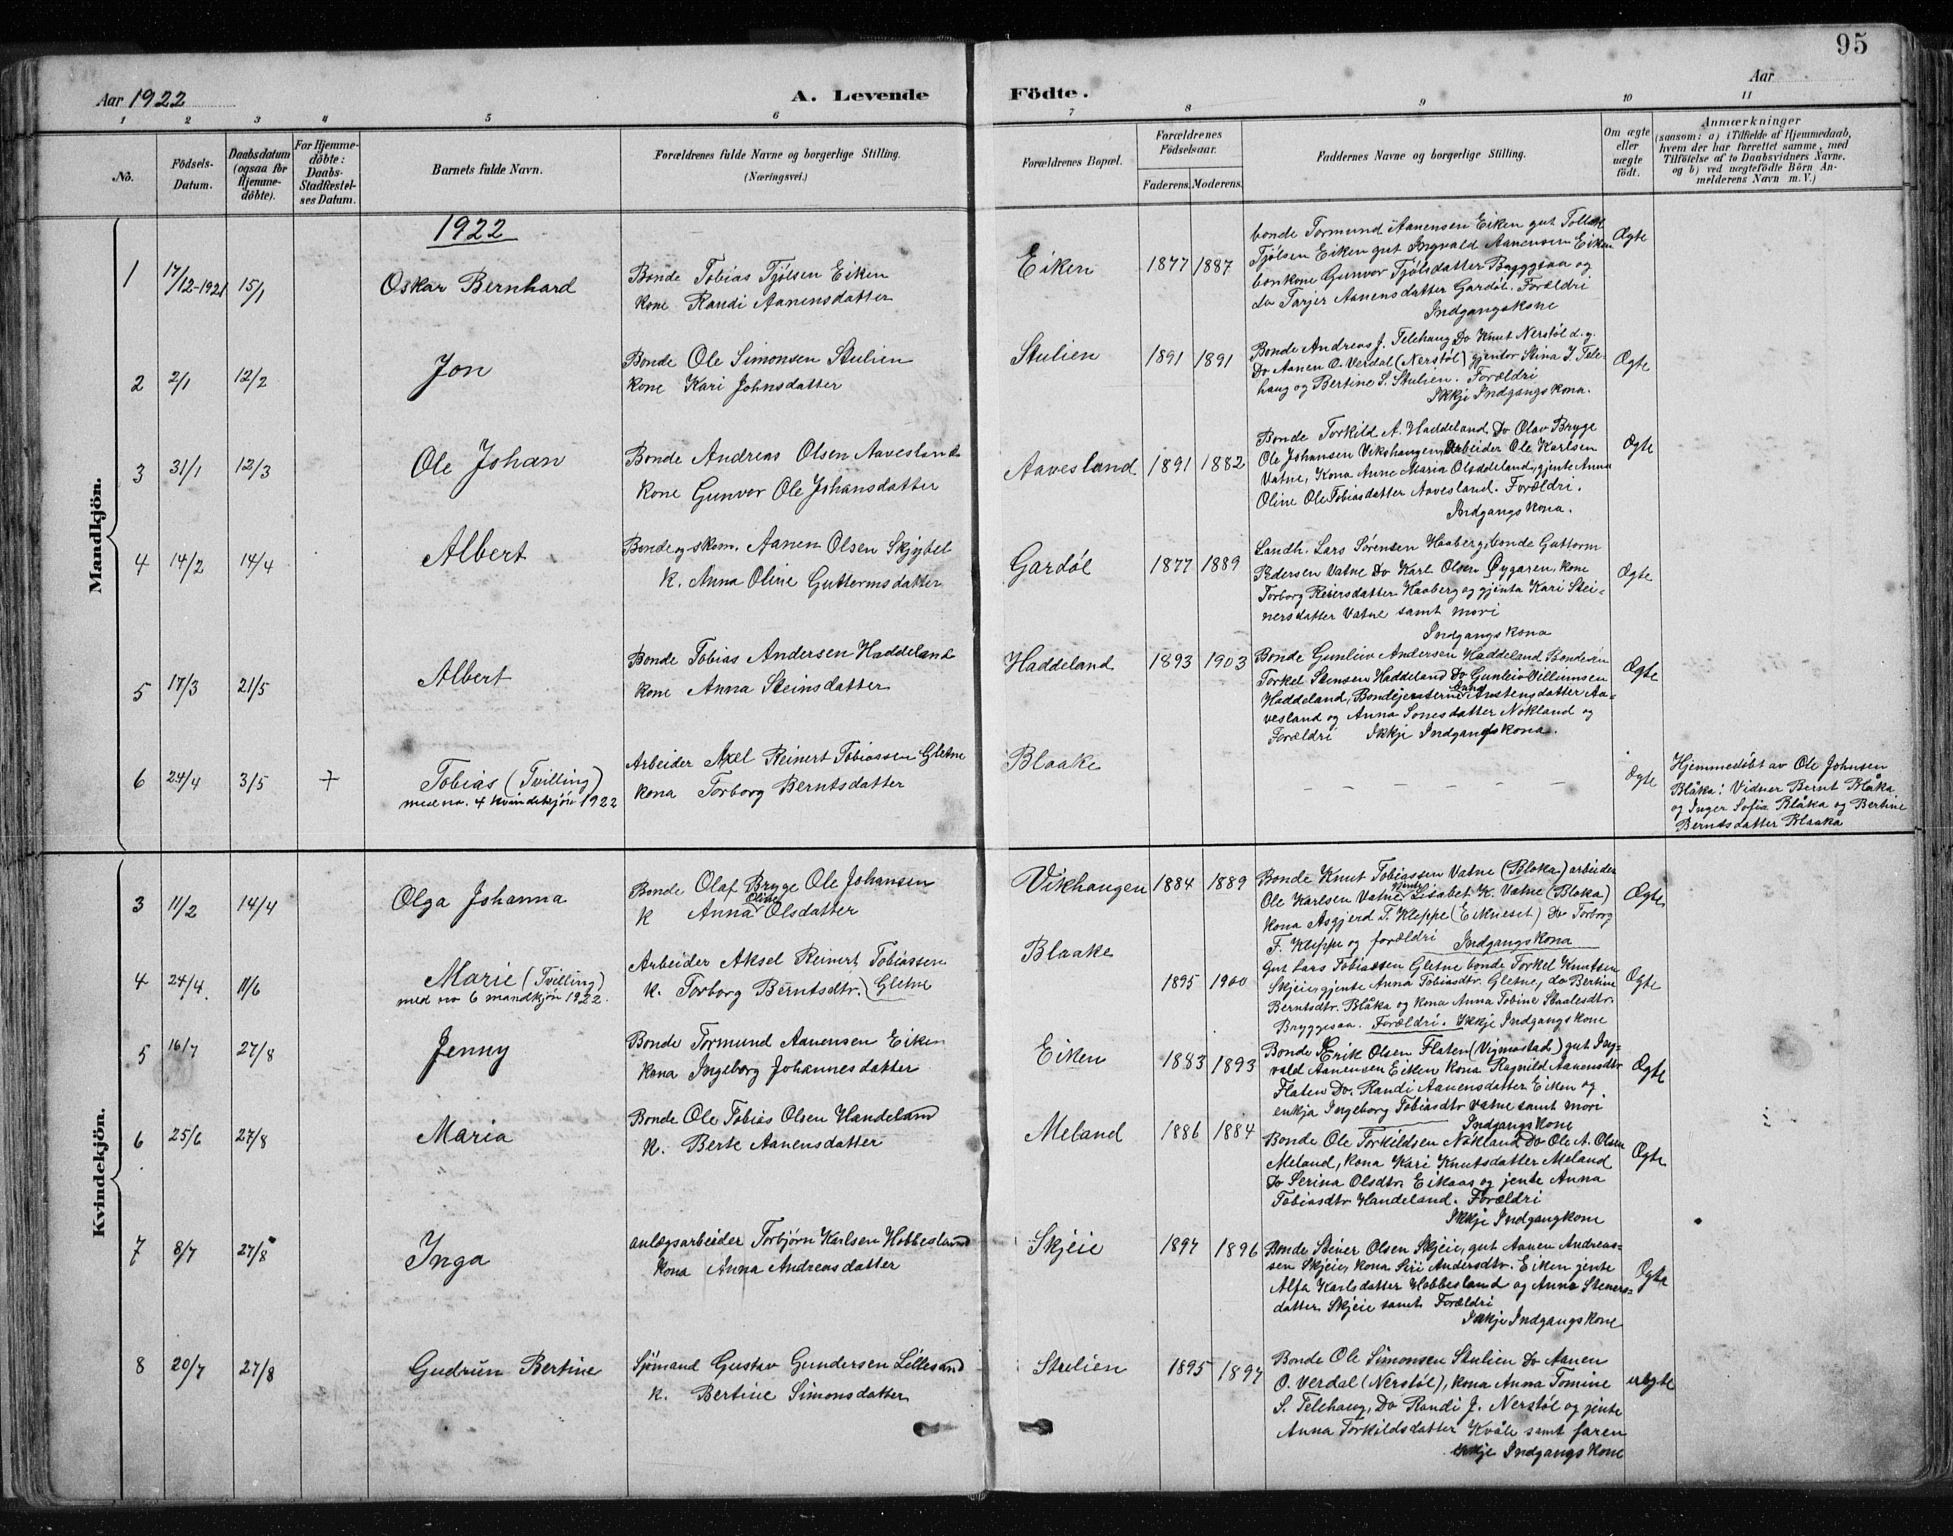 95
Aar 1922
A. Levende Födte.
Aar
1 2 3 4 5 6 7 8 9 10 11
No.
Födsels-Datum.
Daabsdatum (ogsaa for Hjemme-döbte).
For Hjemme-döbte: Daabs-Stadfæstel-ses Datum.
Barnets fulde Navn.
Forældrenes fulde Navne og borgerlige Stilling.
(Næringsvei.)
Forældrenes Bopæl.
Forældrenes Födselsaar.
Faderens. Moderens.
Faddernes Navne og borgerlige Stilling.
Om ægte eller uægte födt.
Anmærkninger
(saasom: a) i Tilfælde af Hjemmedaab, hvem der har forrettet samme, med Tilföielse af to Daabsvidners Navne. og b) ved uægtefödte Börn An-melderens Navn m. V.)
Mandkjön.
1922
1 17/12-1921 15/1 Oskar Bernhard
Bonde Tobias Tjølsen Eiken
kone Randi Aanensdatter
Eiken 1877 1887
bonde Tormund Aanensen Eiken gut Tollak
Tjølsen Eiken gut Ingvald Aanensen Eiken
bonkone Gunvor Tjølsdatter Bryggsaa og
do Tarjer Aanensdatter Gardøl. Forældri
Indgangskone
Ægte
2 2/1 12/2 Jon
Bonde Ole Simonsen Stulien
kone Kari Johnsdatter
Stulien 1891 1891
Bonde Andreas J. Telehaug Do Knut Nerstøl d.g.
Do Aanen O. Verdal (Nerstøl) gjentor Stina J. Tele-
haug og Bertine S. Stulien. Forældri
Ikkji Indgangskona.
Ægte
3 31/1 12/3 Ole Johan
Bonde Andreas Olsen Aavesland
kone Gunvor Ole Johansdatter
Aavesland 1891 1882
Bonde Torkild A. Haddeland Do Olav Bryge
Ole Johansen Vikshaugen, Arbeider Ole Karlsen
Vatne, Kona Anne Maria O. Haddeland, gjente Anna
Oline Ole Tobiasdatter Aavesland. Forældri.
Indgangskona.
Ægte
4 14/2 14/4 Albert
Bonde og skom. Aanen Olsen Skjybel
k. Anna Oline Guttormsdatter
Gardøl 1877 1889
Landh. Lars Sørensen Haaberg, bonde Guttorm
Pedersen Vatne Do Karl Olsen Øygaren, kone
Torborg Reiersdatter Haaberg og gjenta Kari Stei-
nersdatter Vatne samt mori
Indgangskona
Ægte
5 17/3 21/5 Albert
Bonde Tobias Andersen Haddeland
kone Anna Steinsdatter
Haddeland 1893 1903
Bonde Gunleiv Andersen Haddeland Bondesøn
Torkel Stensen Haddeland Do Gunleiv Villumsen
Haddeland, Bondejenterne Anstensdatter Aa-
vesland og Anna Sonesdatter Nøkland og
Forældri Ikkji Indgangskona.
Ægte
6 24/4 3/5 Tobias (Tvilling)
med no. 4 kvindekjøn 1922
Arbeider Axel Reinert Tobiassen Gletne
kona Torborg Berntsdatter
Blaake
Ægte
Hjemmedøbt av Ole Johnsen
Blåka: Vidner Bernt Blåka
og Inger Sofia Blåka og Bertine
Berntsdatter Blaaka
Kvindekjön.
3 11/2 14/4 Olga Johanna
Bonde Olaf Bryge Ole Johansen
k Anna Oline Olsdatter
Vikhaugen 1884 1889
Bonde Knut Tobiassen Vatne (Bloka) arbeider
Ole Karlsen Vatne Lisabet K. Vatne (Bloka)
kona Asgjerd T. Kleppe (Eikneset) do Torborg
F. Kleppe og forældri Indgangskona
Ægte
4 24/4. 11/6 Marie (Tvilling)
med no 6 mandkjøn 1922.
Arbeider Aksel Reinert Tobiassen
k. Torborg Berntsdtr. Gletne
Blaake 1895 1900
Gut Lars Tobiassen Gletne bonde Torkel Knutsen
Skjeie, gjente Anna Tobiasdtr. Gletne, do Bertine
Berntsdtr. Blåka og kona Anna Tobine Staalesdtr.
Bryggesaa. Forældri. Ikkje Indgangskone
Ægte
5 16/7 27/8 Jenny
Bonde Tormund Aanensen Eiken
kona Ingeborg Johannesdatter
Eiken 1883 1893
Bonde Erik Olsen Flaten (Vigmostad) gut Ing-
vald Aanensen Eiken kona Ragnild Aanensdtr
Flaten Do. Randi Aanensdatter Eiken og
enkja Ingeborg Tobiasdtr Vatne samt mori
Indgangskone
Ægte
6 25/6 27/8 Maria
Bonde Ole Tobias Olsen Handeland
k. Berte Aanensdatter
Meland 1886 1884
Bonde Ole Torkildsen Nøkland Do Ole A. Olsen
Meland, kona Kari Knutsdatter Meland
Do Serina Olsdtr. Eikaas og jente Anna
Tobiasdtr Handeland. Forældri
Ikkje Indgangkone
Ægte
7 8/7 27/8 Inga
anlægsarbeider Torbjørn Karlsen Hobbesland
kona Anna Andreasdatter
Skjeie 1897 1896
Bonde Steiner Olsen Skjeie, gut Aanen Andreas-
sen Skjeie, kona Siri Andersdtr. Eiken jente
Alfa Karlsdatter Hobbesland og Anna Steners-
datter Skjeie samt Forældri
Ikkje Indgangskone
Ægte
8 20/7 27/8 Gudrun Bertine
Sjømand Gustav Gundersen Lillesand
k. Bertine Simonsdatter
Stulien 1895 1897
Bonde Ole Simonsen Stulien Do Aanen
O. Verdal (Nerstøl), kona Anna Tomine
S. Telehaug, Do Randi J. Nerstøl og jente
Anna Torkildsdatter Kvåle samt faren
ikkje Indgangskone